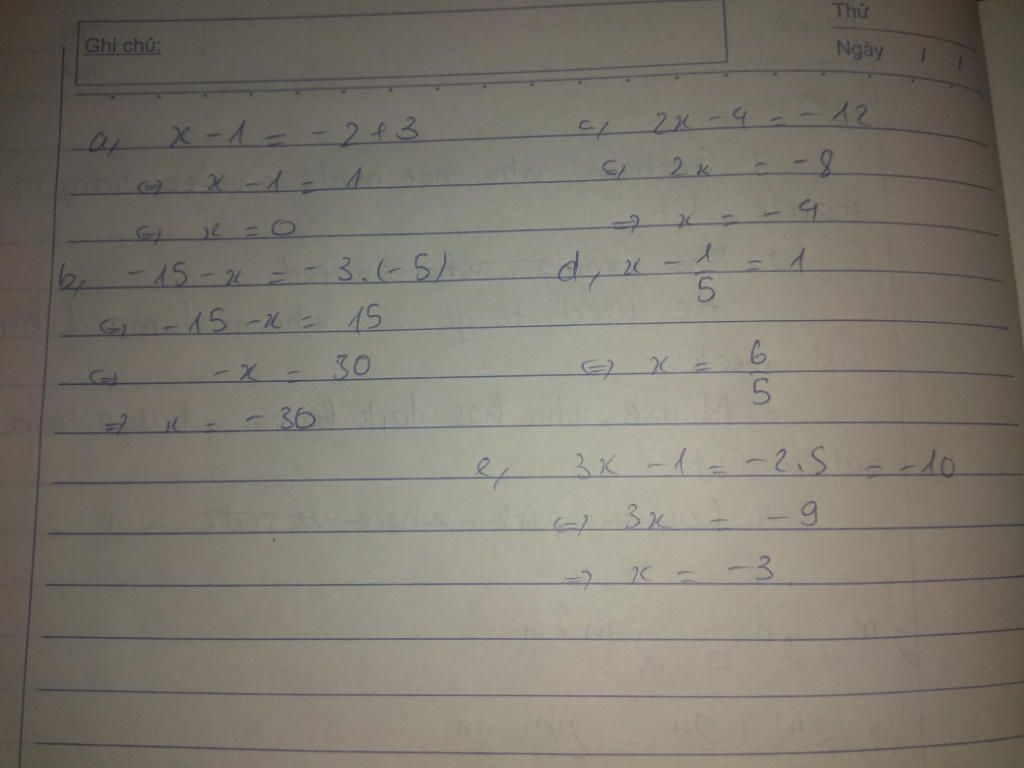 Thứ
Ghi chú:
Ngày / /
a, x - 1 = -2 + 3
⇔ x - 1 = 1
⇔ x = 0
b, -15 - x = -3.(-5)
⇔ -15 - x = 15
⇔ -x = 30
⇒ x = -30
c, 2x - 4 = -12
⇔ 2x = -8
⇒ x = -4
d, x - 1/5 = 1
⇔ x = 6/5
e, 3x - 1 = -2.5 = -10
⇔ 3x = -9
⇒ x = -3